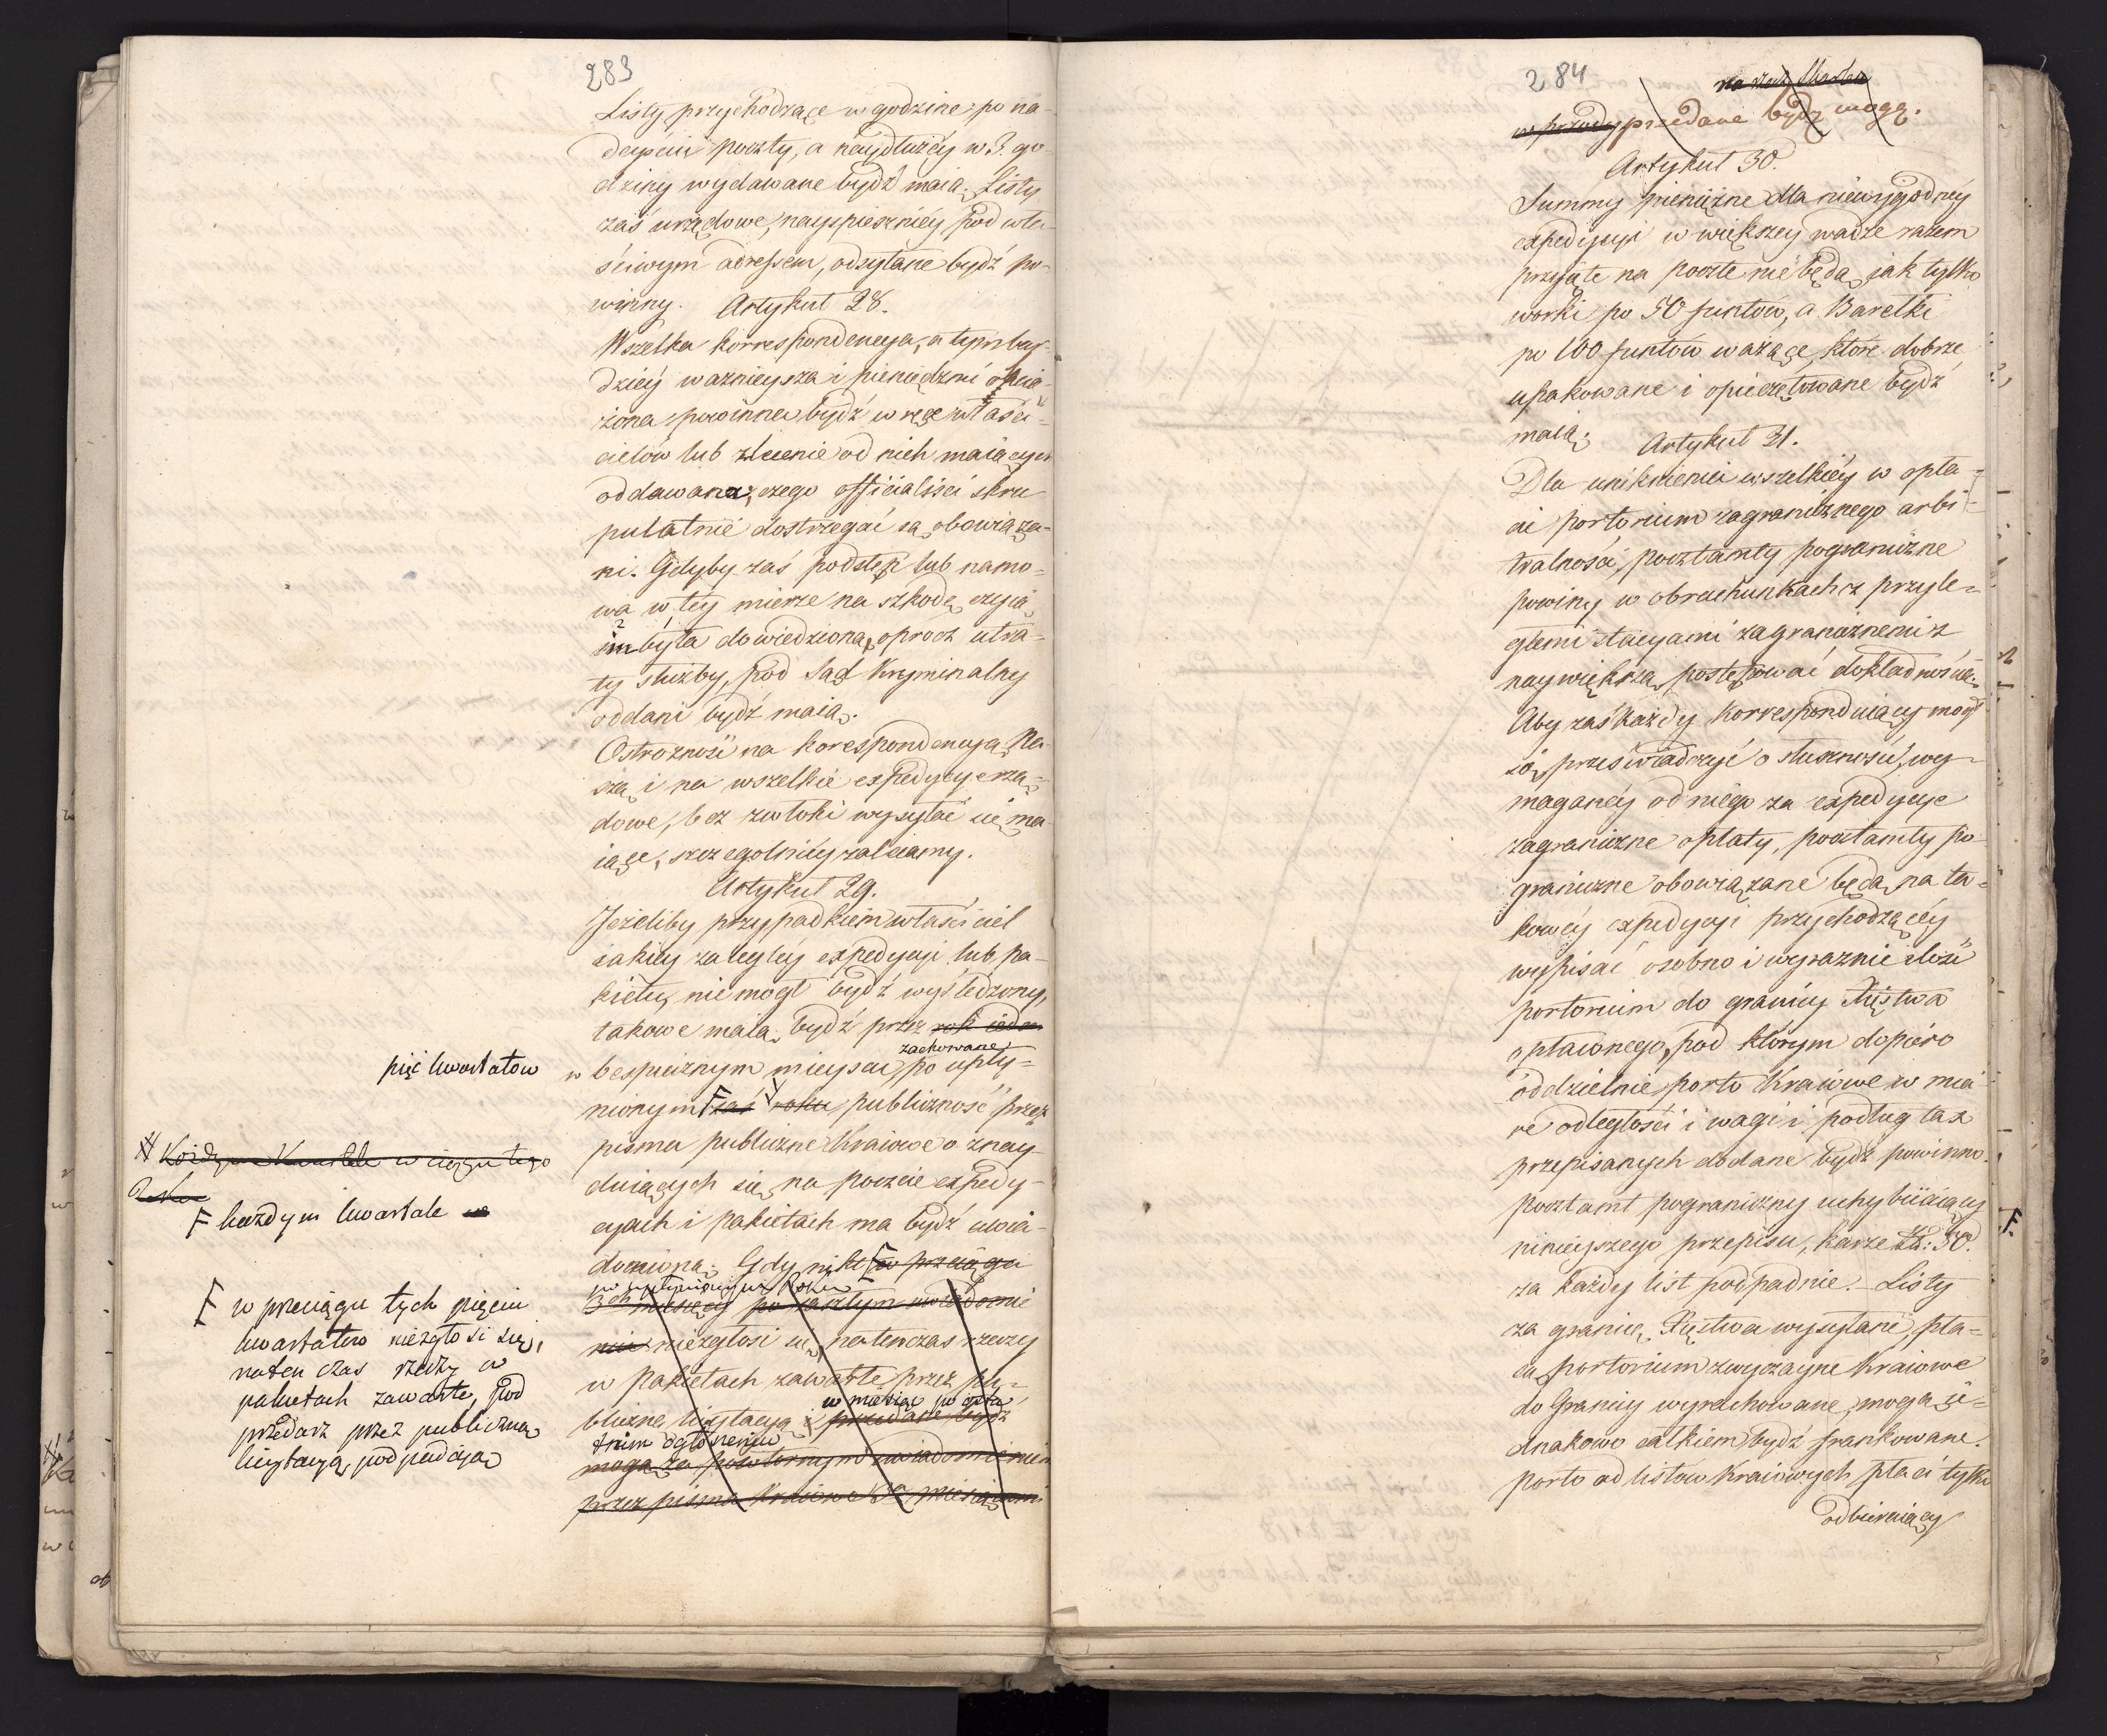 283
Listy przychodzące w godzine po na-
deyściu poczty, a naydłużéy w 3. go-
dziny wydawane bydź maią. Listy
zaś urzędowe, nayspieszniéy pod wła-
ściwym adressem, odsyłane bydź po-
winny. Artykuł 28.
Wszelka korrespondencya, a tym bar-
dziéy ważnieysza i pieniędzmi obcią-
żona powinna bydź w ręce właści-
cielów lub zlecenie od nich maiących
oddawana, czego officialiści skru
pulatnie dostrzegać są obowiąza-
ni. Gdyby zaś podstęp lub namo-
wa w téy mierze na szkodę czyią
im była dowiedziona, oprócz utra-
ty służby, pod Sąd Kryminalny
oddani bydź maią.
Ostrożność na korespondencyą Na-
szą i na wszelkie expedycye rzą-
dowe, bez zwłoki wysyłać się ma-
iące, szczególniéy zalecamy.
Artykuł 29.
Jeżeliby przypadkiem właściciel
iakiéy zaległéy expedycyi lub pa-
kietu, nie mogł bydź wyśledzony,
takowe maią bydź przez rok ieden
pięć kwartałow
zachowane
w bespiecznym mieyscu, po upły-
nionym F zaś roku publiczność przez
pisma publiczne Kraiowe o znay-
duiących się na poczcie expedy-
cyach i pakietach ma bydź uwia-
domiona. Gdy nikt F w przeciągu
po upłynionym Roku
3ch miesięcy po zaszłym uwiadomie
niu niezgłosi się, natenczas rzeczy
w pakietach zawarte przez pu-
w miesiąc po osta
bliczną licytacyą przedane bydź
tnim ogłoszeniu
mogą za powtornym uwiadomieniem
przez pisma kraiowe miesiącami
# Każdym Kwartale w ciągu tego
Roku
F każdym kwartale w
F w przeciągu tych pięciu
kwartałów niezgłosi się,
naten czas rzeczy w
pakietach zawarte, pod
przedarz przez publiczną
licytacyą, podpadaią
284
na rzecz Skarbu
w przody przedane bydź mogą.
Artykuł 30.
Summy pieniężne dla niewygodnéy
expedycyi w większey wadze razem
przyięte na poczte nie będą, iak tylko
worki po 50 funtów, a Baretki
po 100 funtów ważące, które dobrze
upakowane i opieczętowane bydź
maią. Artykuł 31.
Dla uniknienia wszelkiéy w opła-
ci portorium zagranicznego arbi-
tralności, pocztamty pograniczne
powinny w obrachunkach z przyle-
głemi stacyami zagranicznemi z
naywiększą postępować dokładnością.
Aby zaś każdy korrespondniący mogł
się przeświadczyć o słuszności, wy-
maganéy od niego za expedycye
zagraniczne opłaty, pocztamty po-
graniczne obowiązane będą, na ta-
kowéy expedycyi przychodzącéy
wypisać osobno i wyraznie ilość
portorium do granicy Xięstwa
opłaconego, pod którym dopiéro
oddzielnie porto Kraiowe w mia-
rę odległości i wagi i podług tax
przepisanych dodane bydź powinno.
pocztamt pograniczny uchybiiaiący
ninieyszego przepisu, karze 50.
za każdy list podpadnie. Listy
za granicę Xięstwa wysyłane, pła-
cą portorium zwyczayne kraiowe
do Granicy wyrachowane, mogą ie-
dnakowo całkiem bydź frankowane.
porto od listów Kraiowych płaci tylko
odbieraiący
F.